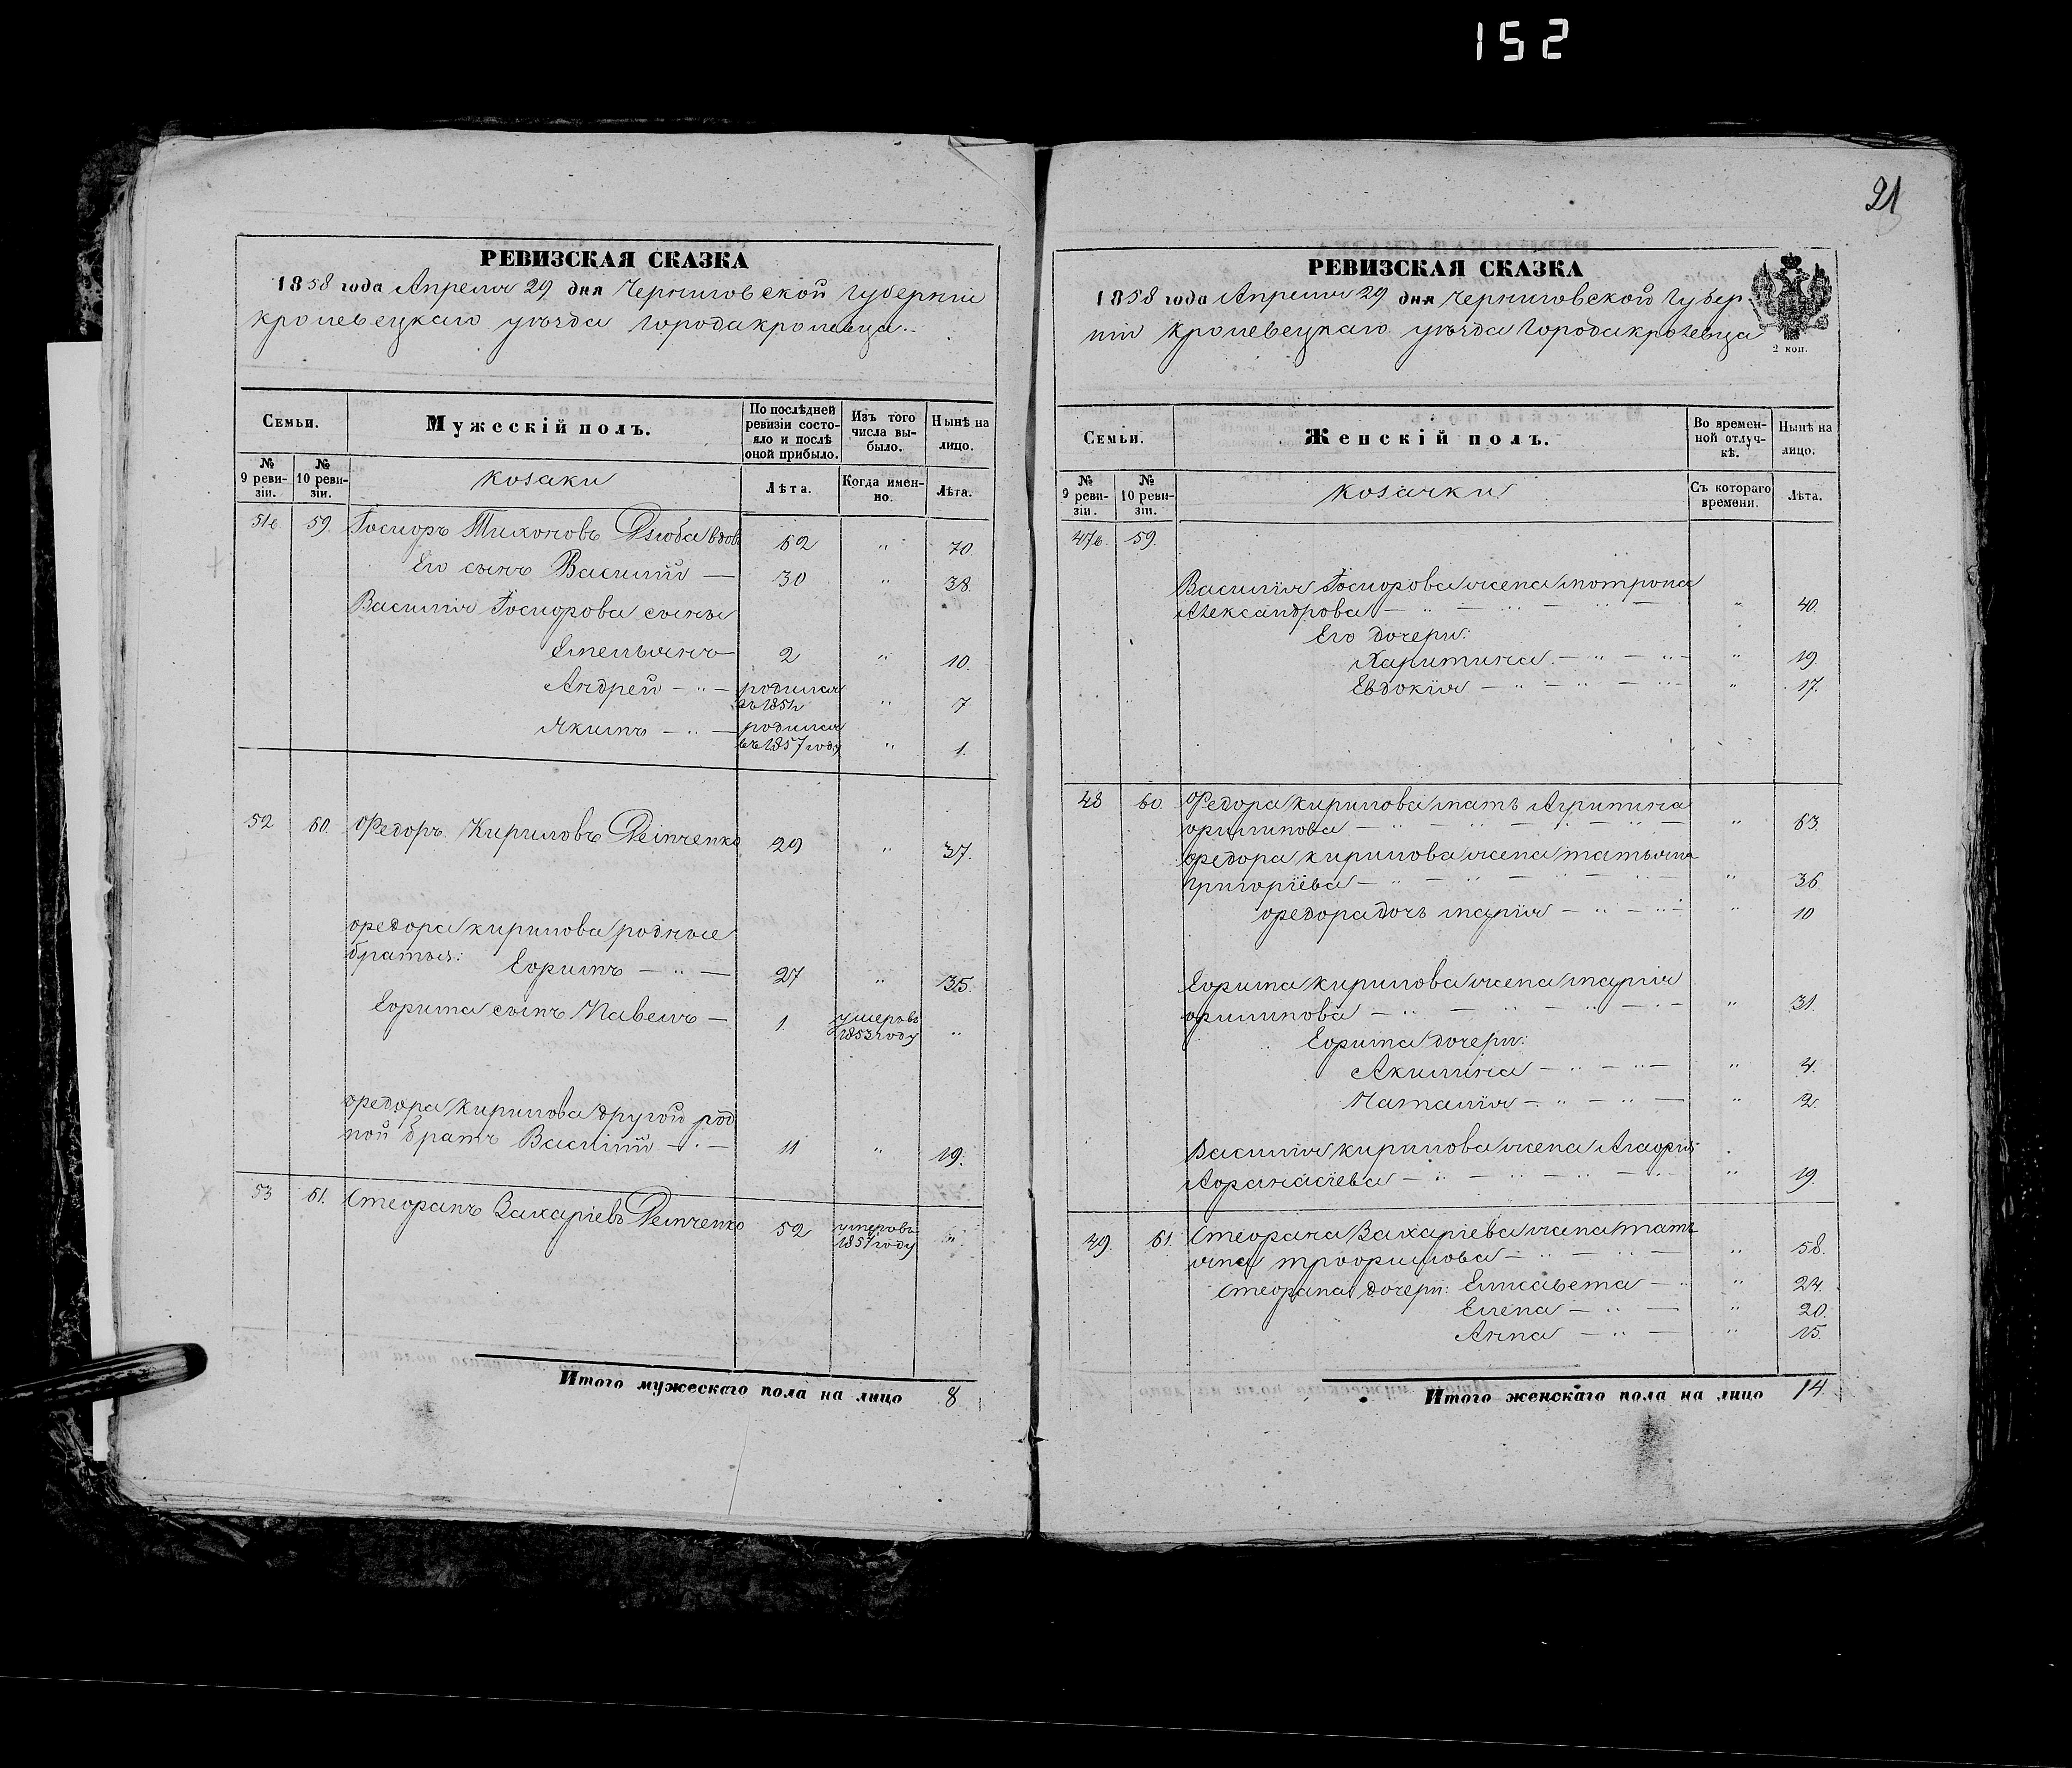 152
РЕВИЗСКАЯ СКАЗКА
1858 года Апреля 29 дня Черниговской Губерніи
Кролевецкаго уѣзда Города Кролевца.
Семьи.
Мужескій полъ.
По послѣдней ревизіи состояло и послѣ оной прибыло.
Изъ того числа выбыло.
Нынѣ на лицо.
№ 9 ревизіи.
№ 10 ревизіи.
Козаки
Лѣта.
Когда именно.
Лѣта.
59. Тихоновъ Дзюба 62 " 70.
Его сынъ Василій — 30 " 38.
Василія сыны
Емельянъ 2 " 10.
Андрей — " — родился въ 1851 " 7
Якимъ — " — родился въ 1857 году " 1.
52 60. Федоръ Кириловъ 29 " 37.
Федора Кирилова родные
братья: Ефимъ — " — 27 " 35.
Ефима сынъ Павелъ — 1. умеръ въ 1853 году "
Федора Кирилова другой род
ной братъ Василій — " — 11 " 19.
53 61. Стефанъ Захаріевъ 52 умеръ въ 1857 году "
Итого мужескаго пола на лицо 8
21
РЕВИЗСКАЯ СКАЗКА
1858 года Апреля 29 дня Черниговской Губер-
ніи Кролевецкаго уѣзда Города Кролевца
2 коп.
Семьи.
Женскій полъ.
Во временной отлучкѣ.
Нынѣ на лицо.
№ 9 ревизіи.
№ 10 ревизіи.
Козачки
Съ котораго времени.
Лѣта.
59.
Василія жена Мотрона
Александрова — " — " — " — " 40.
Его дочери:
Харитина — " — " — " 19.
Евдокія — " — " — " 17.
48 60 Федора Кирилова мать Агрипина
Филипова — " — " — " — " 63.
Федора Кирилова жена Татьяна
Григоріева — " — " — " — " 36
Федора дочь Марія — " — " — " 10
Ефима Кирилова жена Марія
Филипова — " — " — " — " 31.
Ефима дочери:
Акилина — " — " — " 4.
Наталія — " — " — " 2.
Василія Кирилова жена
Афанасіева — " — " — " — " 19.
49. 61. Стефана Захаріева жена Татъ
яна Трофимова — " — " — " 58.
Стефана дочери: Елисавета — " " 24.
Елена — " — " 20.
Анна — " — " 15.
Итого женскаго пола на лицо 14